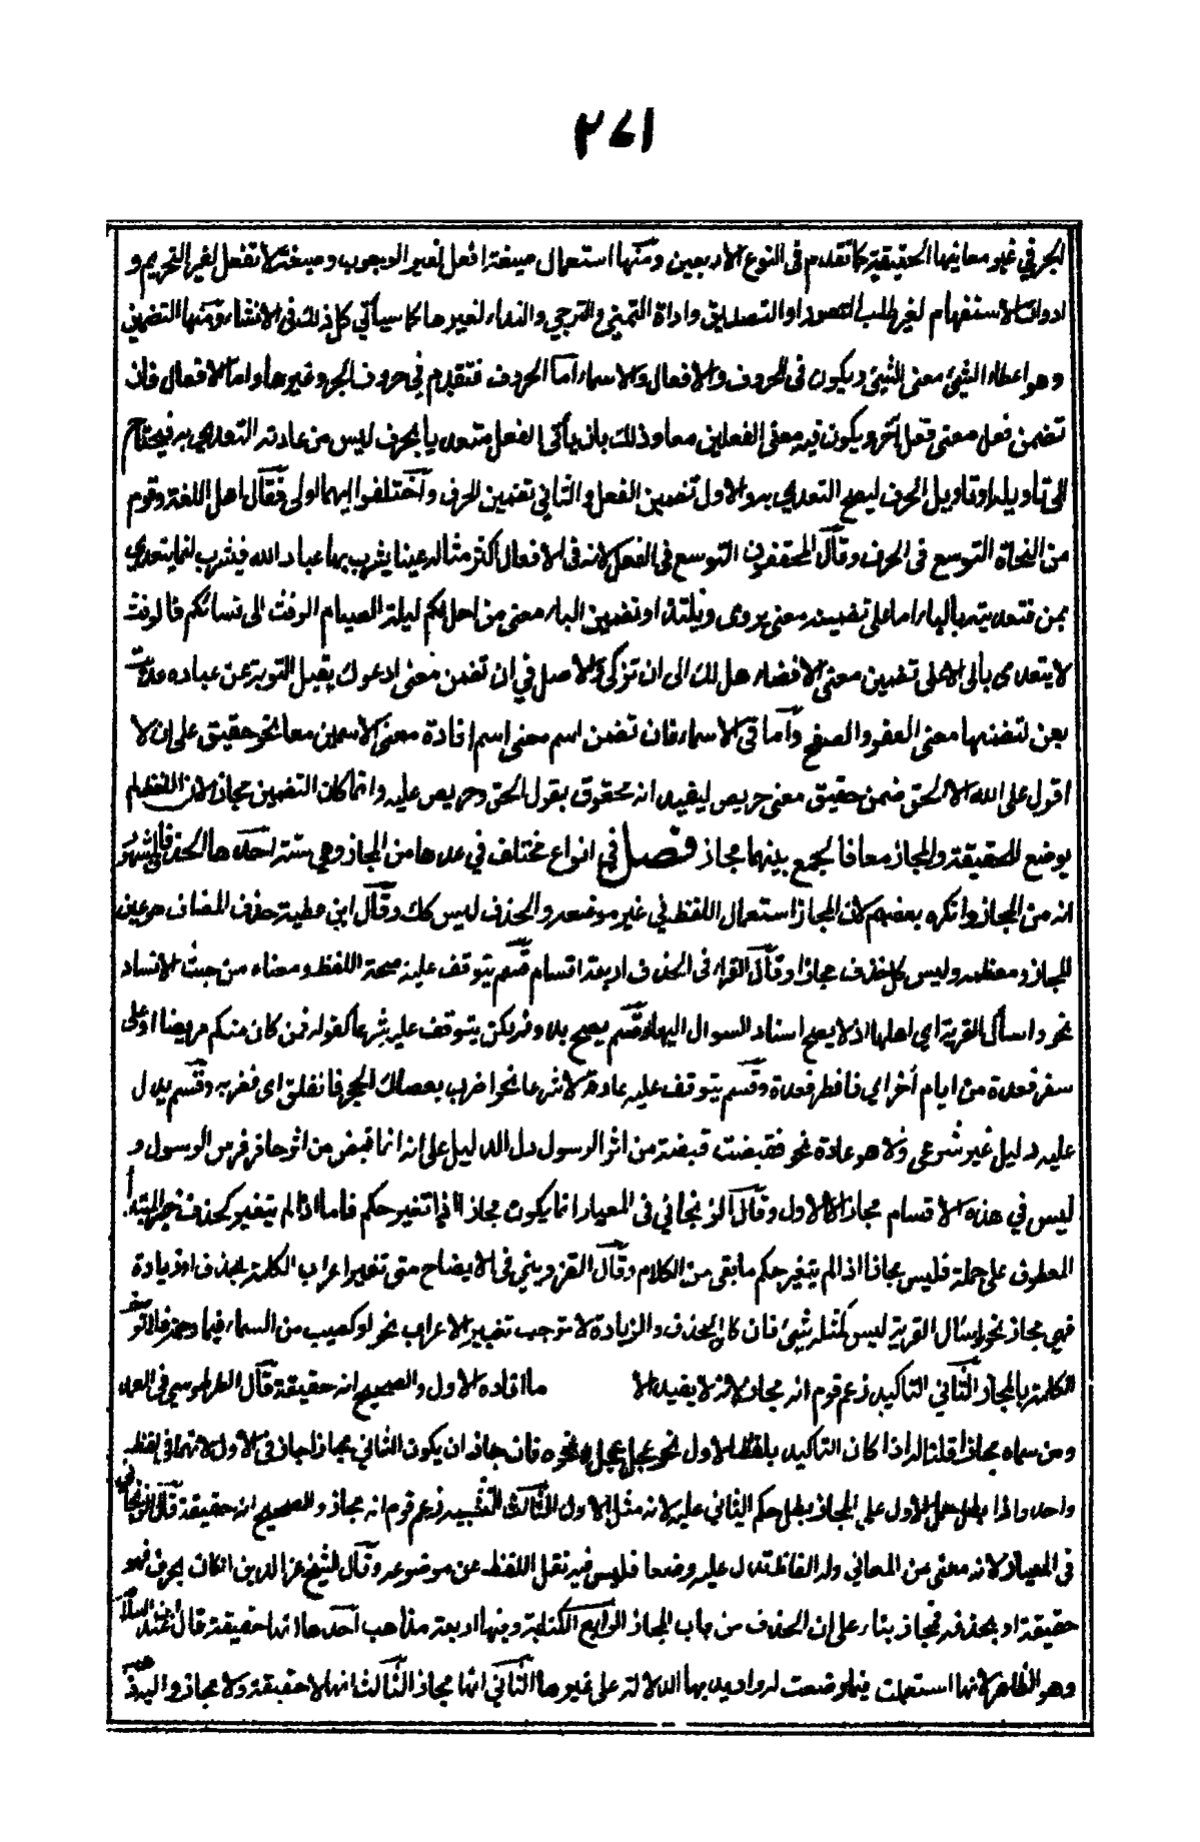 ٢٧١
الجر في غير معانيها الحقيقية كما تقدم فى النوع الاربعين ومنها استعمال صيغة افعل لغير الوجوب وصيغة لا تفعل لغير التحريم و
ادوات الاستفهام لغير طلب التصور او التصديق واداة التمني والترجي والنداء لغيرها كما سيأتي كل ذلك فى الانشاء ومنها التضمين
وهو اعطاء الشيئ معنى الشيئ ويكون فى الحروف والافعال والاسماء اما الحروف فتقدم في حروف الجر وغيرها واما الافعال فان
تضمن فعل معنى فعل آخر ويكون فيه معنى الفعلين معا وذلك بان يأتى الفعل متعديا بحرف ليس من عادته التعدي به فيحتاج
الى تاويله او تاويل الحرف ليصح التعدي به والاول تضمين الفعل والثاني تضمين الحرف واختلفوا ايهما اولى فقال اهل اللغة وقوم
من النحاة التوسع فى الحرف وقال المحققون التوسع فى الفعل لانه فى الافعال اكثر مثاله عينا يشرب بها عباد الله فيشرب انما يتعدي
بمن فتعديته بالباء اما على تضمينه معنى يروى ويلتذ او تضمين الباء معنى من احل لكم ليلة الصيام الرفث الى نسائكم فالرفث
لا يتعدى بالى الا على تضمين معنى الافضاء هل لك الى ان تزكى والاصل في ان تضمن معنى ادعوك يقبل التوبة عن عباده عديت
بعن لتضمنها معنى العفو والصفح واما فى الاسماء فان تضمن اسم معنى اسم افادة معنى الاسمين معا نحو حقيق على ان لا
اقول على الله الا الحق ضمن حقيق معنى حريص ليفيد انه محقوق بقول الحق وحريص عليه وانما كان التضمين مجازا لان اللفظ لم
يوضع للحقيقة والمجاز معا فالجمع بينهما مجاز فصل في انواع مختلف في عدها من المجاز وهي ستة احدها الحذف فالمشهور
انه من المجاز وانكره بعضهم لان المجاز استعمال اللفظ في غير موضعه والحذف ليس كك وقال ابن عطية حذف المضاف هو عين
المجاز ومعظمه وليس كل حذف مجازا وقال القرافى الحذف اربعة اقسام قسم يتوقف عليه صحة اللفظ ومعناه من حيث الاسناد
نحو واسأل القرية اي اهلها اذ لا يصح اسناد السوال اليها وقسم يصح بدونه لكن يتوقف عليه شرعا كقوله فمن كان منكم مريضا او على
سفر فعدة من ايام أخر اي فافطر فعدة وقسم يتوقف عليه عادة لا شرعا نحو اضرب بعصاك الحجر فانفلق اى فضربه وقسم يدل
عليه دليل غير شرعى ولا هو عادة نحو فقبضت قبضة من اثر الرسول دل الدليل على انه انما قبض من اثر حافر فرس الرسول و
ليس في هذه الاقسام مجاز الا الاول وقال الزنجاني فى المعيار انما يكون مجازا اذا تغير حكم فاما اذا لم يتغير كحذف خبر المبتدأ
المعطوف على جملة فليس مجازا اذ لم يتغير حكم ما بقى من الكلام وقال القزويني فى الايضاح متى تغير اعراب الكلمة بحذف او زيادة
فهي مجاز نحو واسأل القرية ليس كمثله شيئ فان كان الحذف والزيادة لا توجب تغيير الاعراب نحو او كصيب من السماء فبما رحمة فلا توصف
الكلمة بالمجاز الثاني التاكيد زعم قوم انه مجاز لانه لا يفيد الا ما افاده الاول والصحيح انه حقيقة قال الطرطوسي فى العمد
ومن سماه مجازا قلنا له اذا كان التاكيد بلفظ الاول نحو عجل عجل ونحوه فان جاز ان يكون الثاني مجازا جاز فى الاول لانهما فى لفظ
واحد واذا بطل حمل الاول على المجاز بطل حكم الثاني عليه لانه مثل الاول الثالث التشبيه زعم قوم انه مجاز والصحيح انه حقيقة قال الزنجاني
فى المعيار لانه معنى من المعاني وله الفاظ تدل عليه وضعا فليس فيه نقل اللفظ عن موضوعه وقال الشيخ عز الدين ان كان بحرف فهو
حقيقة او بحذفه فمجاز بناء على ان الحذف من باب المجاز الرابع الكناية وفيها اربعة مذاهب احدها انها حقيقة قال ابن عبد السلام
وهو الظاهر لانها استعملت فيما وضعت له واريد بها الدلالة على غيرها الثاني انها مجاز الثالث انها لا حقيقة ولا مجاز واليه ذهب